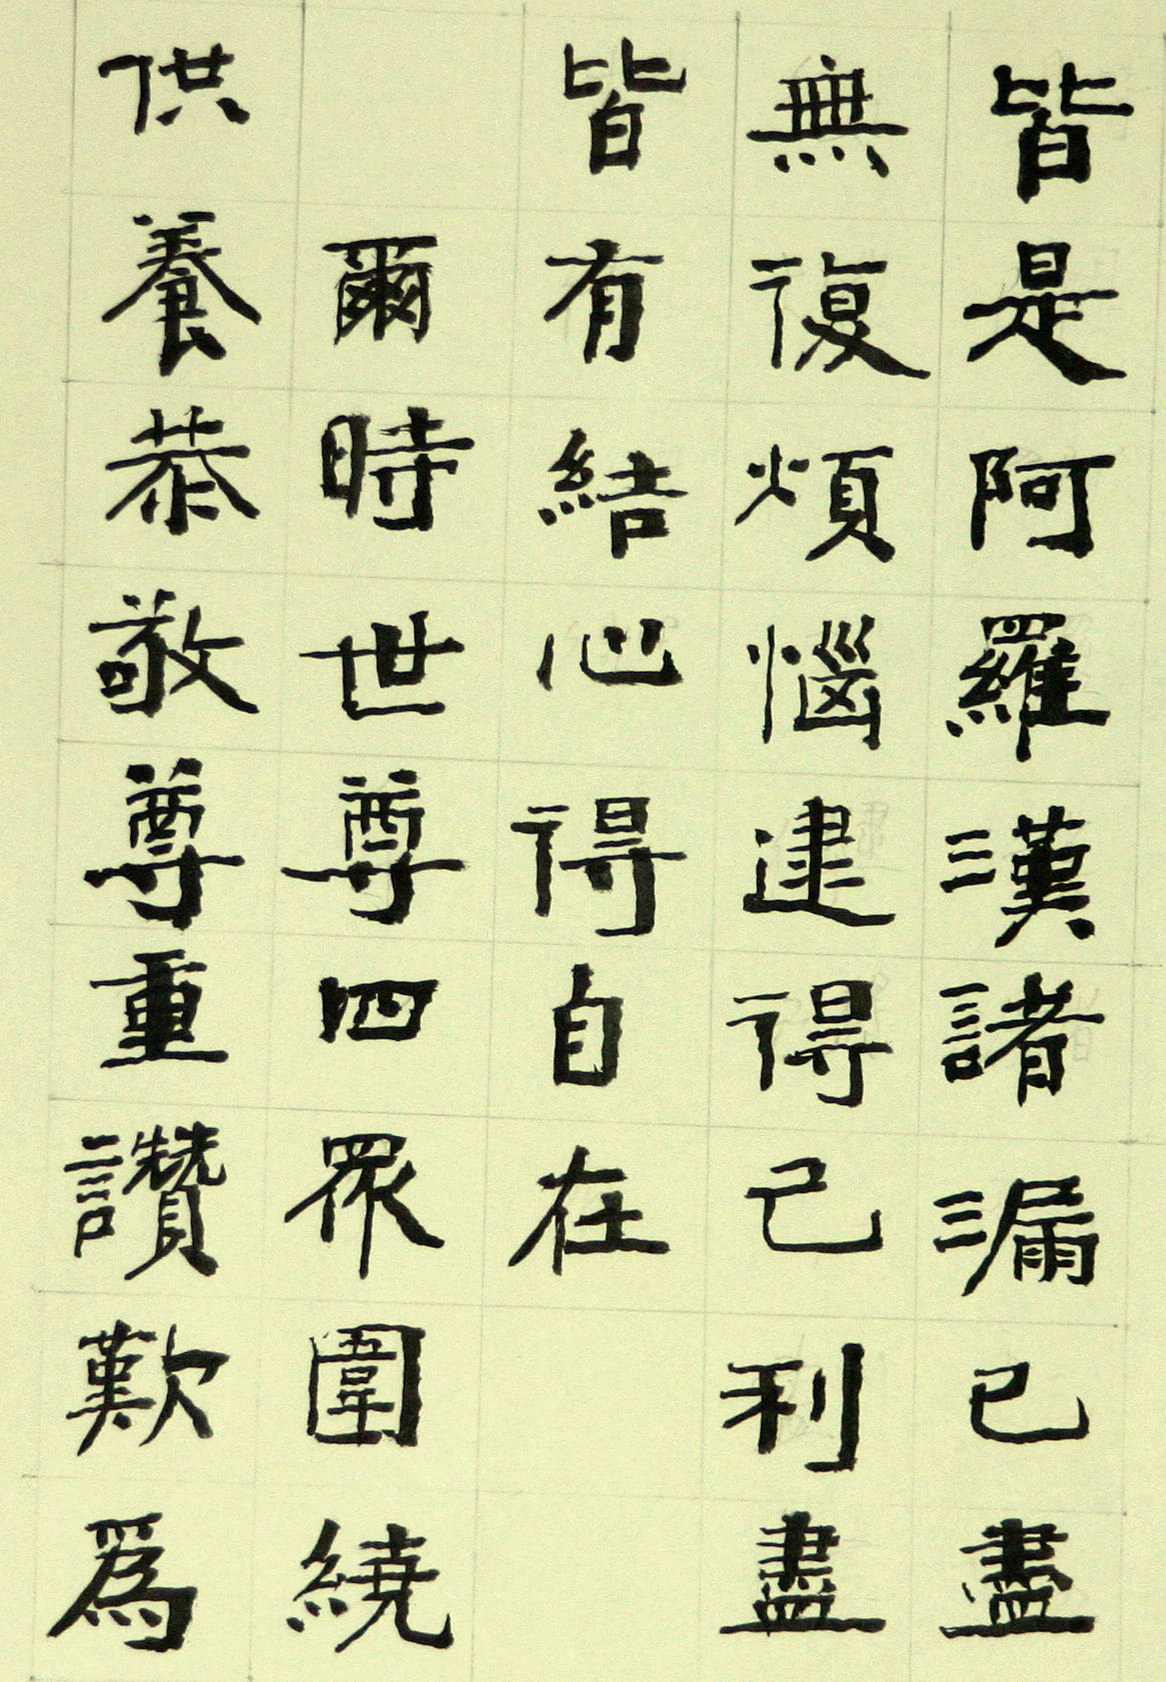 皆是阿羅漢諸漏已盡
無復煩惱逮得己利盡
皆有結心得自在
爾時世尊四眾圍繞
供養恭敬尊重讚歎為